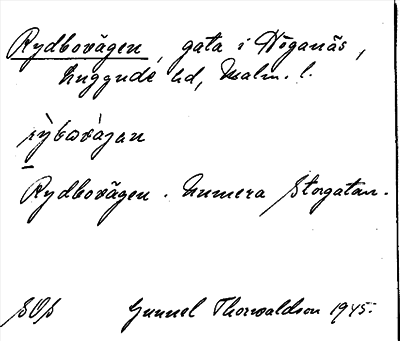 Rydbovägen, gata i Höganäs,
Luggude hd, Malm. l.
rỳbωvàgan
Rydbovägen. Numera Storgatan.
SOS Gunnel Thorwaldson 1945.